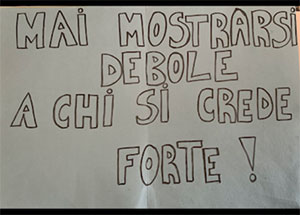 MAI MOSTRARSI
DEBOLE
A CHI SI CREDE
FORTE!